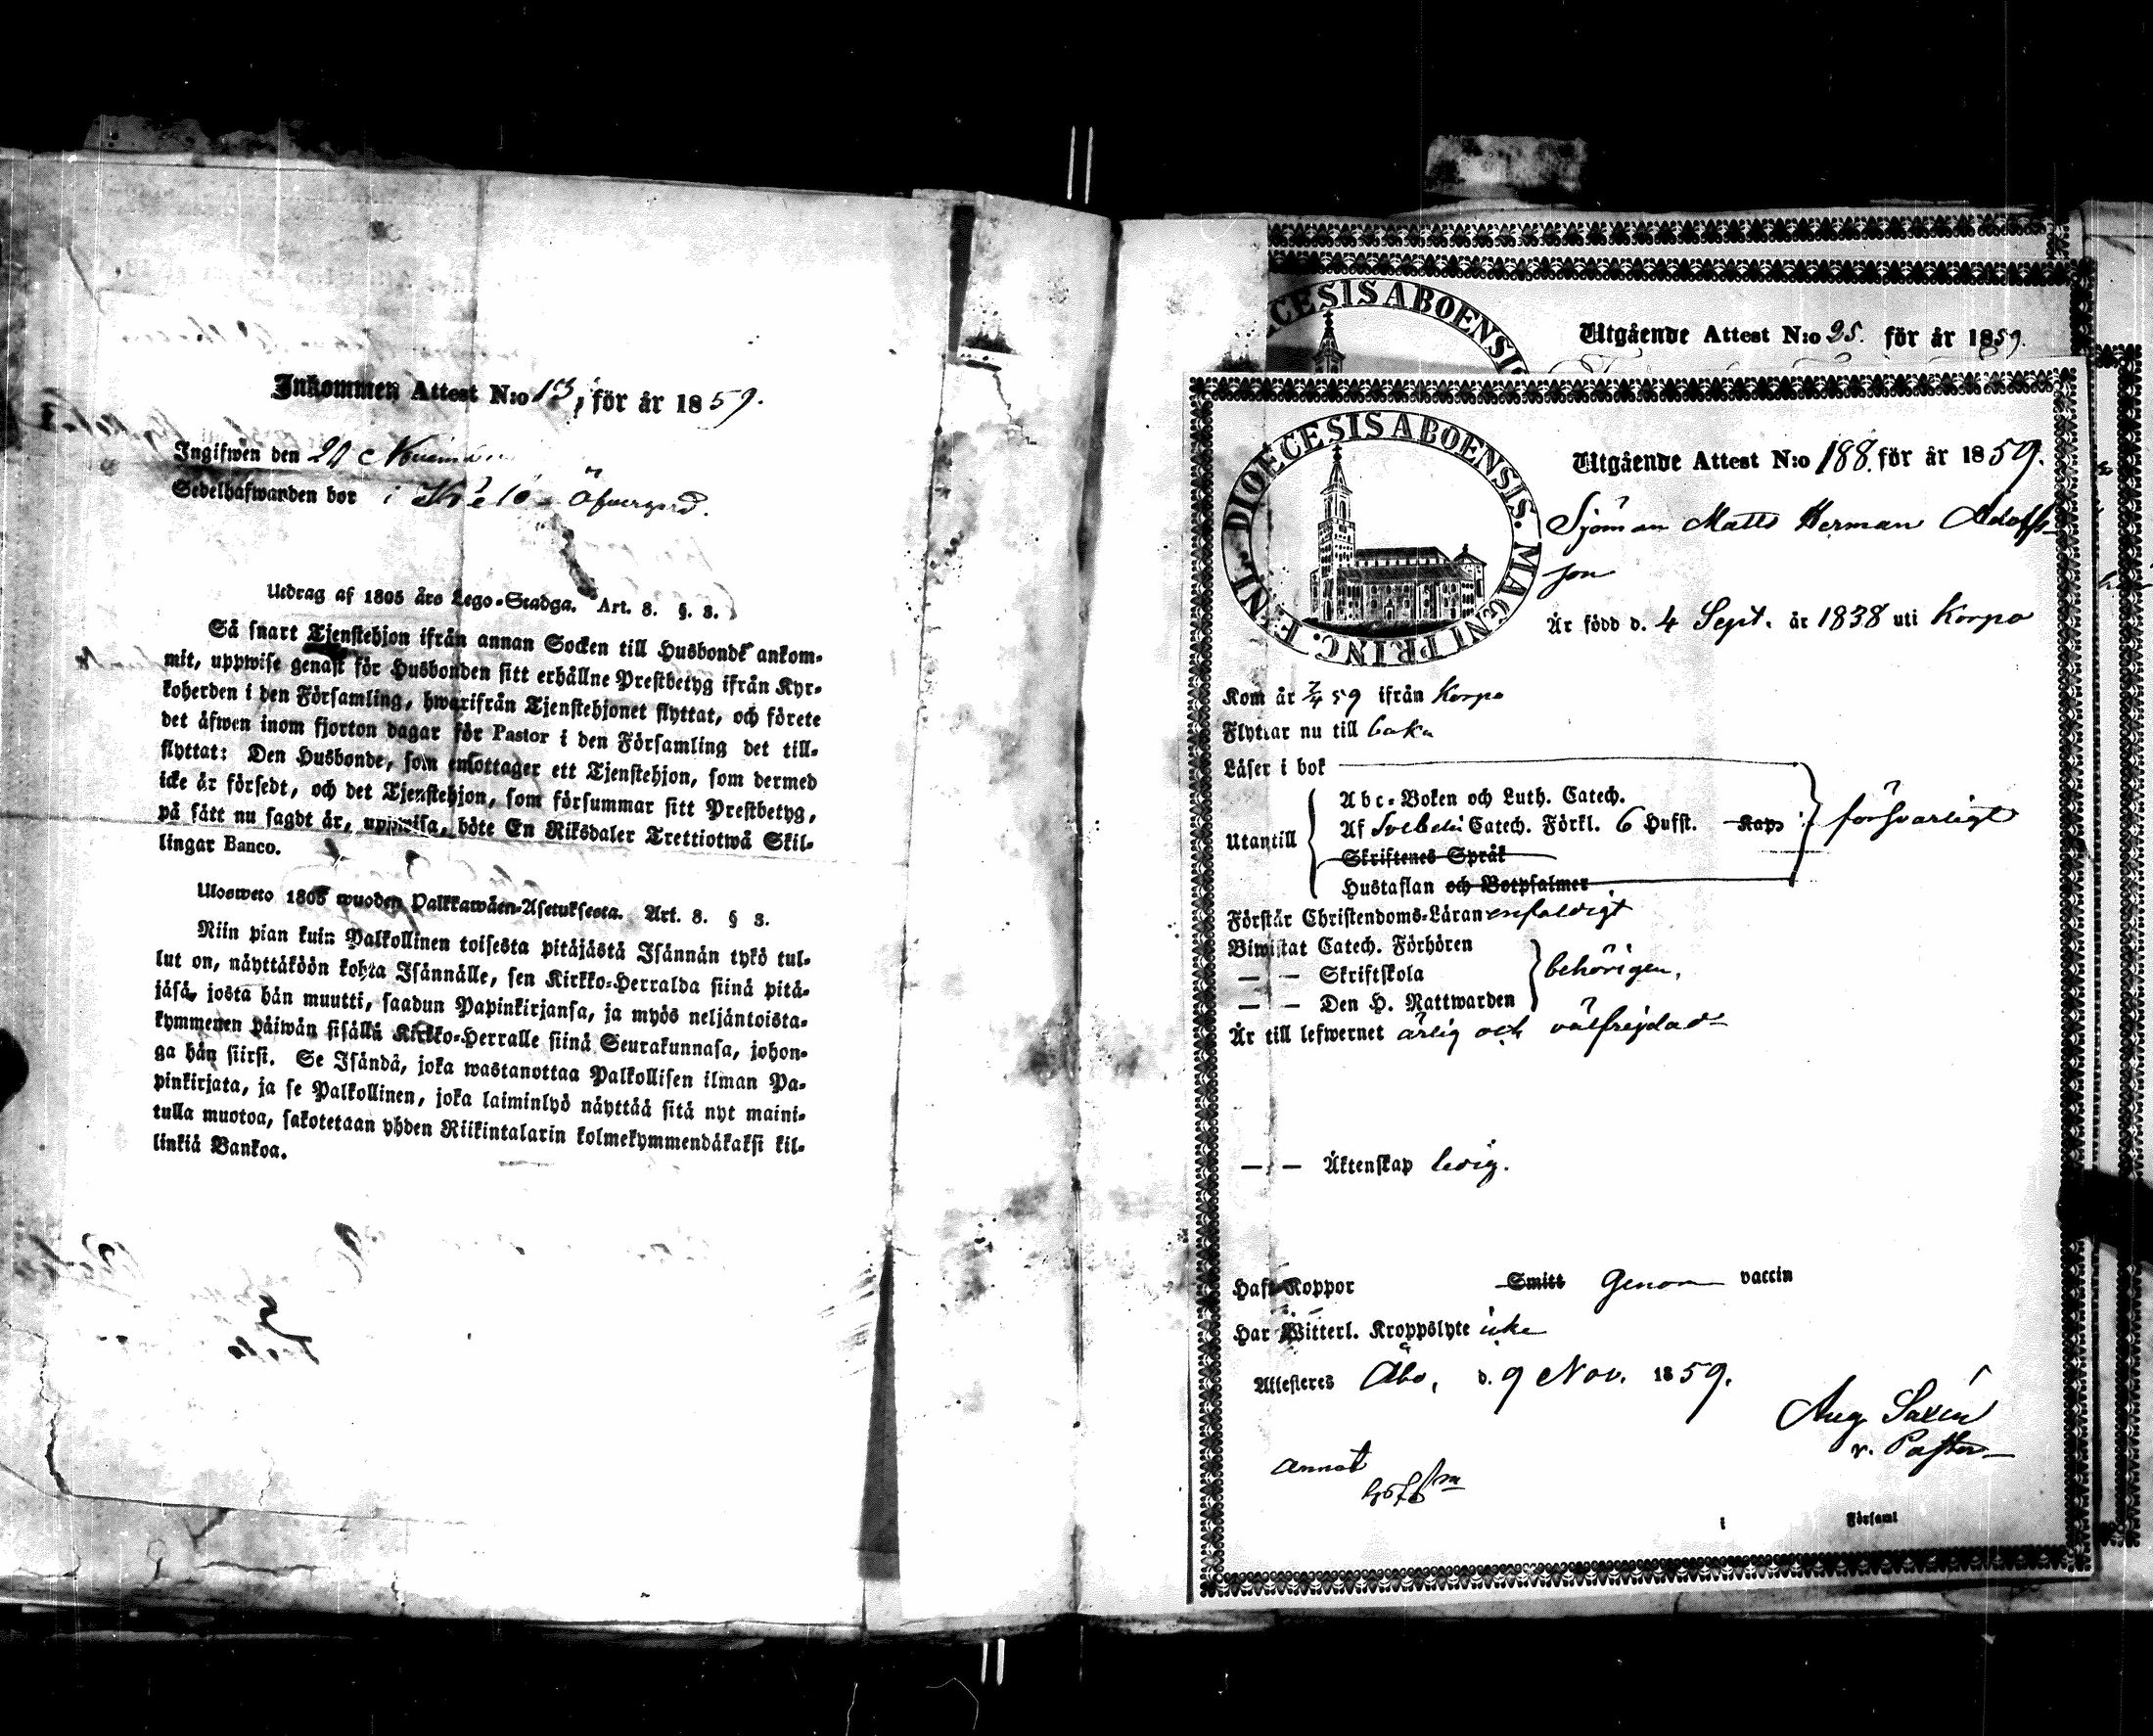 Inkommen Attest N:o 13, för år 1859.
Ingifwen den 20 November
Sedelhafwanden bor i Öfvergård.
Utdrag af 1805 års Lego-Stadga. Art. 8. §. 3.
Så snart Tjenstehjon ifrån annan Socken till Husbonde ankom-
mit, uppwise genast för Husbonden sitt erhållne Prestbetyg ifrån Kyr-
koherden i den Församling, hwarifrån Tjenstehjonet flyttat, och förete
det äfwen inom fjorton dagar för Pastor i den Församling det till-
flyttat: Den Husbonde, som emottager ett Tjenstehjon, som dermed
icke är försedt, och det Tjenstehjon, som försummar sitt Prestbetyg,
på sätt nu sagdt är, uppwisa, böte En Riksdaler Trettiotwå Skil-
lingar Banco.
Ulosweto 1805 wuoden Palkkawäen-Asetuksesta. Art. 8. § 3.
Niin pian kuin Palkollinen toisesta pitäjästä Isännän tykö tul-
lut on, näyttäköön kohta Isännälle, sen Kirkko-Herralda siinä pitä-
jäsä, josta hän muutti, saadun Papinkirjansa, ja myös neljäntoista-
kymmenen päiwän sisällä Kirkko-Herralle siinä Seurakunnasa, johon-
ga hän siirsi. Se Isändä, joka wastanottaa Palkollisen ilman Pa-
pinkirjata, ja se Palkollinen, joka laiminlyö näyttää sitä nyt maini-
tulla muotoa, sakotetaan yhden Riikintalarin kolmekymmendäkaksi kil-
linkiä Bankoa.
Utgående Attest N:o 25. för år 1859.
DIOECESIS ABOENSIS. MAGNI PRINC. FENL.
Utgående Attest N:o 188. för år 1859.
Sjöman Matts Herman Adolfs-
son
Är född d. 4 Sept. år 1838 uti Korpo
Kom år 7/4 59 ifrån Korpo
Flyttar nu till baka
Läser i bok
Abc-Boken och Luth. Catech.
Utantill Af Svebelii Catech. Förkl. 6 Hufst. Kap. försvarligt
Skriftenes Språk
Hustaflan och Botpsalmer
Förstår Christendoms-Läran enfaldigt
Biwistat Catech. Förhören
— — Skriftskola behörigen,
— — Den H. Nattwarden
Är till lefwernet ärlig och välfrejdad
— — Äktenskap ledig.
Haft Koppor Smitt Genom vaccin
Har Witterl. Kroppslyte icke
Attesteras Åbo, d. 9 Nov. 1859.
Aug. Saxén
v. Pastor
annot
i Församl